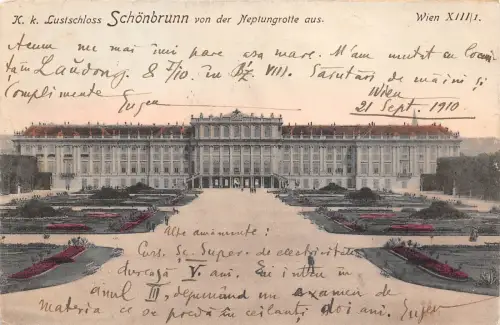 K. k. Lustschloss Schönbrunn von der Neptungrotte aus.
Wien XIII/1.
Acum nu mai îmi pare asa mare. M'am mutat cu locuin
ta în Laudong. 8 I/10. în Bz. VIII. Salutări de mâini și
Complimente Eugen
Wien
21 Sept. 1910
Uite amănunte:
Curs. Sc. Super. de electricitate
durează V ani. Eu intru în
anul III, depunând un examen de
materia ce se predă în ceilanți doi ani. Eugen